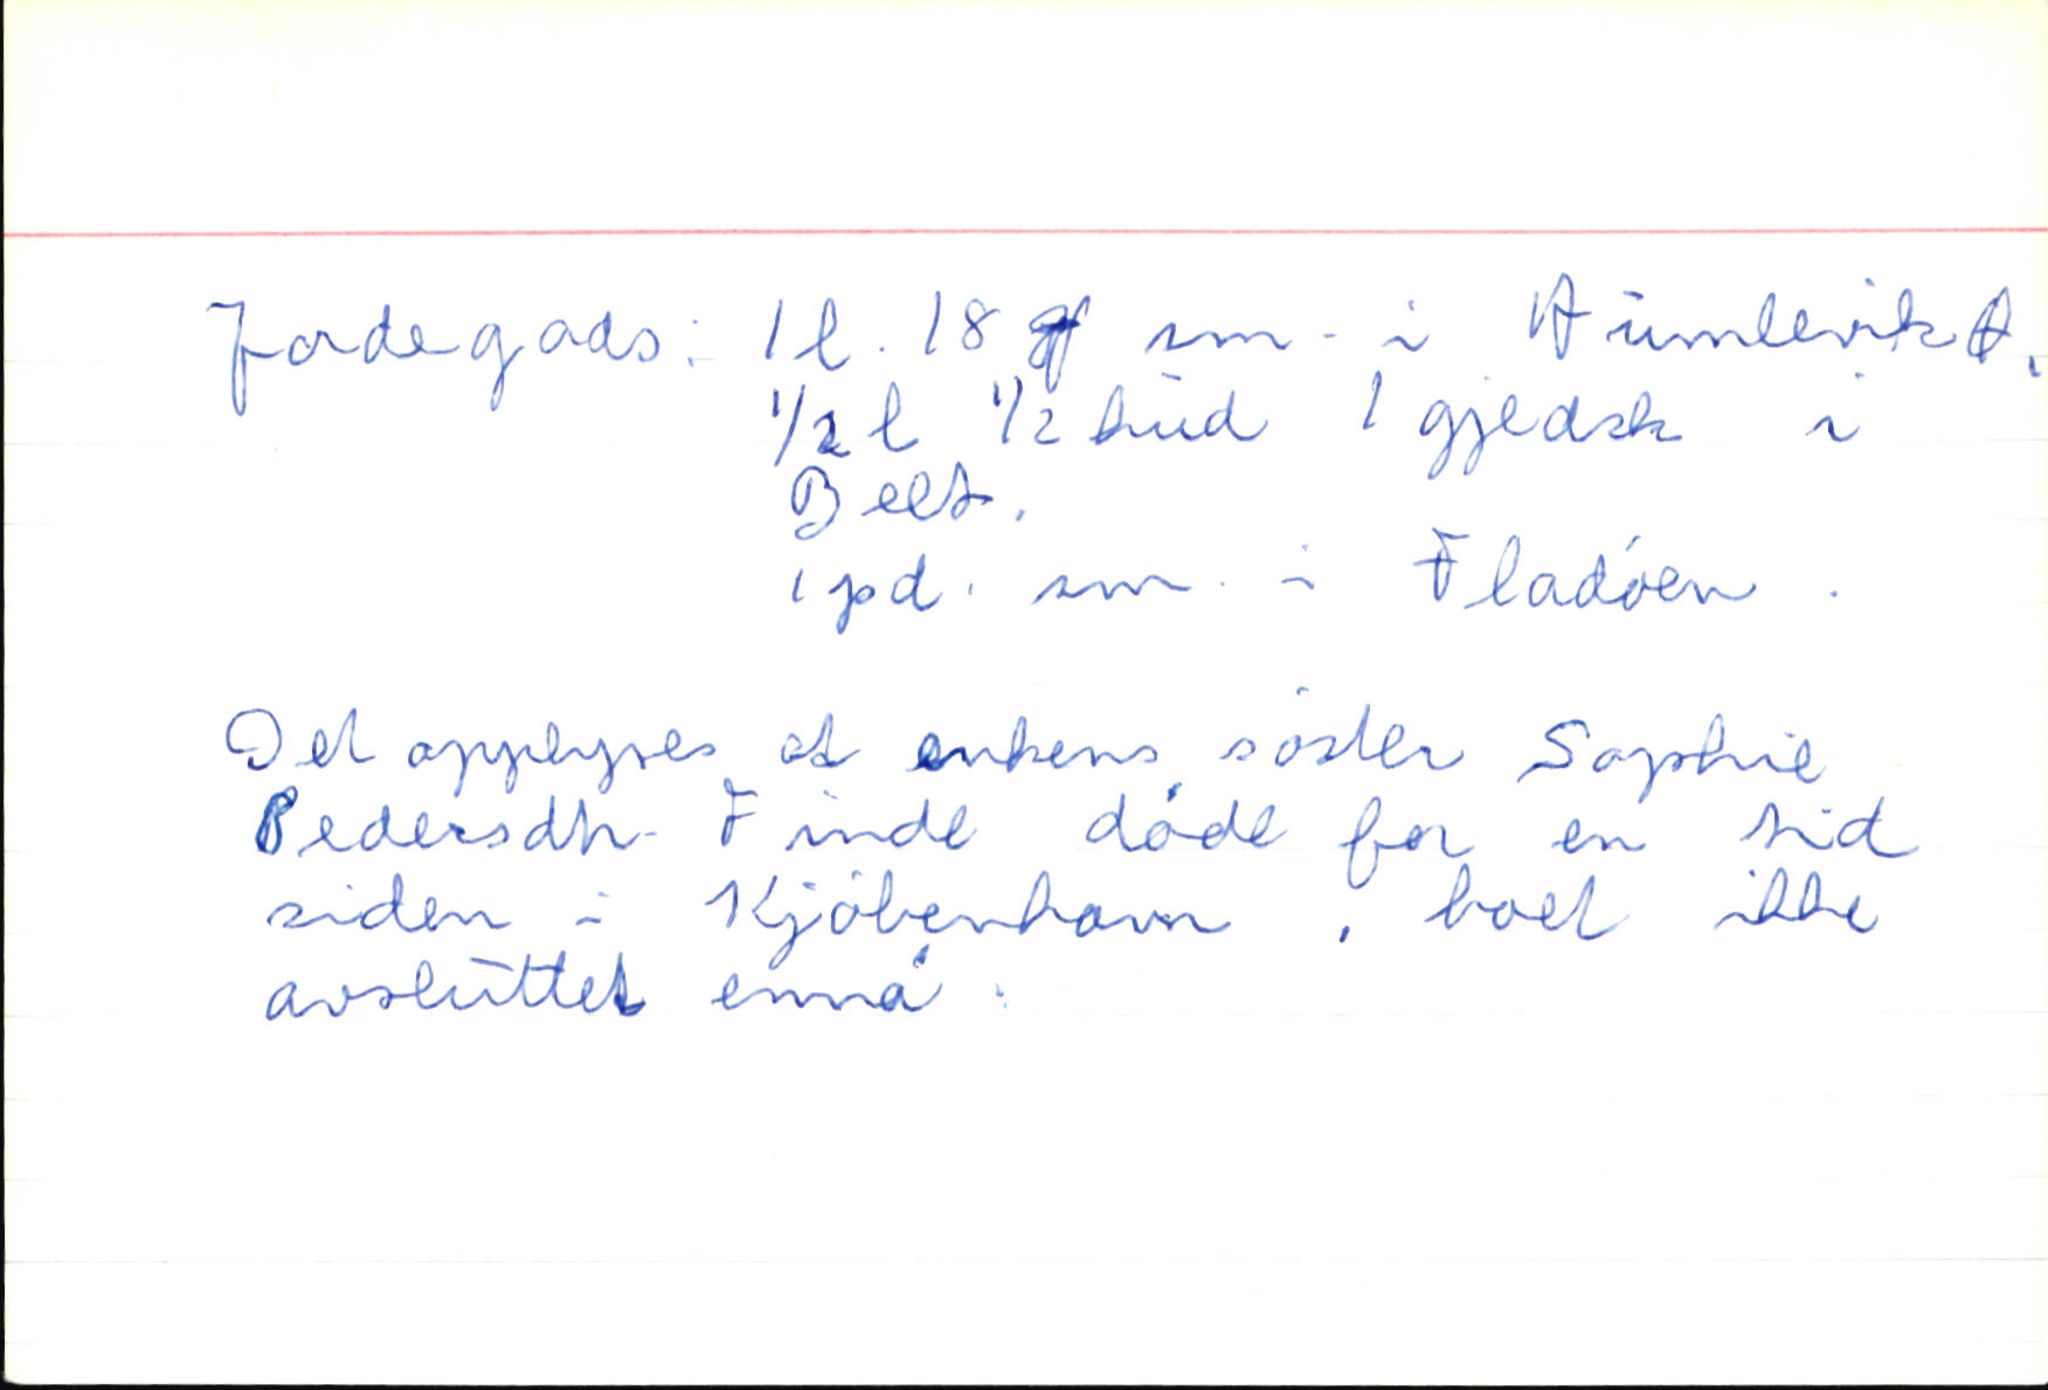 Jordegods: 1 l. 18 sm. i Humlevik
1/2 l 1/2 hud 1 gjedsk i
Belt.
1 pd. sm. i Fladøen.
Det opplyses at enkens søster Sophie
Pedersdtr. Finde døde for en tid
siden i Kjøbenhavn, boet ikke
avsluttet ennå.